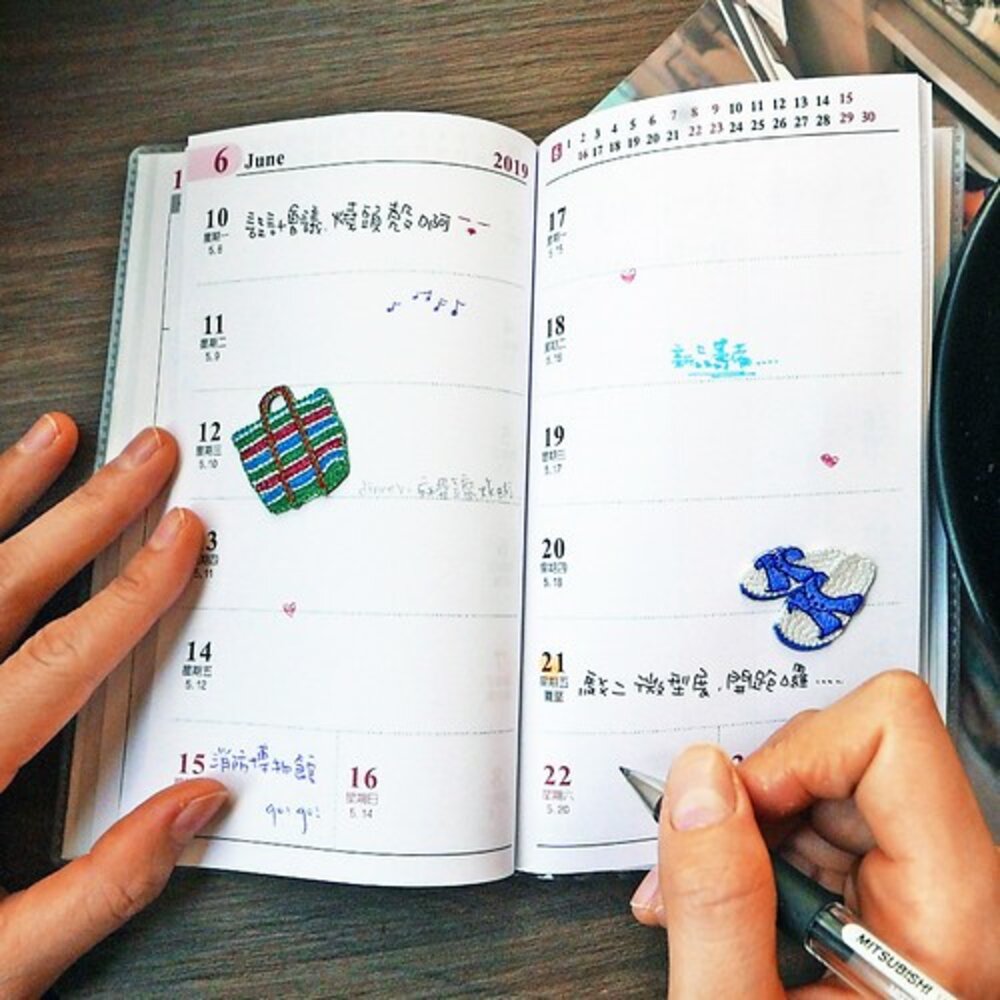 6 June 2019
10 設計會議.燒頭殼啊
星期一
5.8
11
星期二
5.9
12
星期三
5.10
dinner.
3
期四
5.11
14
星期五
5.12
15 消防博物館
go! go!
16
星期日
5.14
6 1 2 3 4 5 6 7 8 9 10 11 12 13 14 15
16 17 18 19 20 21 22 23 24 25 26 27 28 29 30
17
星期一
5.15
18
星期二
5.16
新品 ....
19
星期三
5.17
20
星期四
5.18
21 微型展.開跑囉....
星期五
夏至
22
星期六
5.20
MITSUBISHI